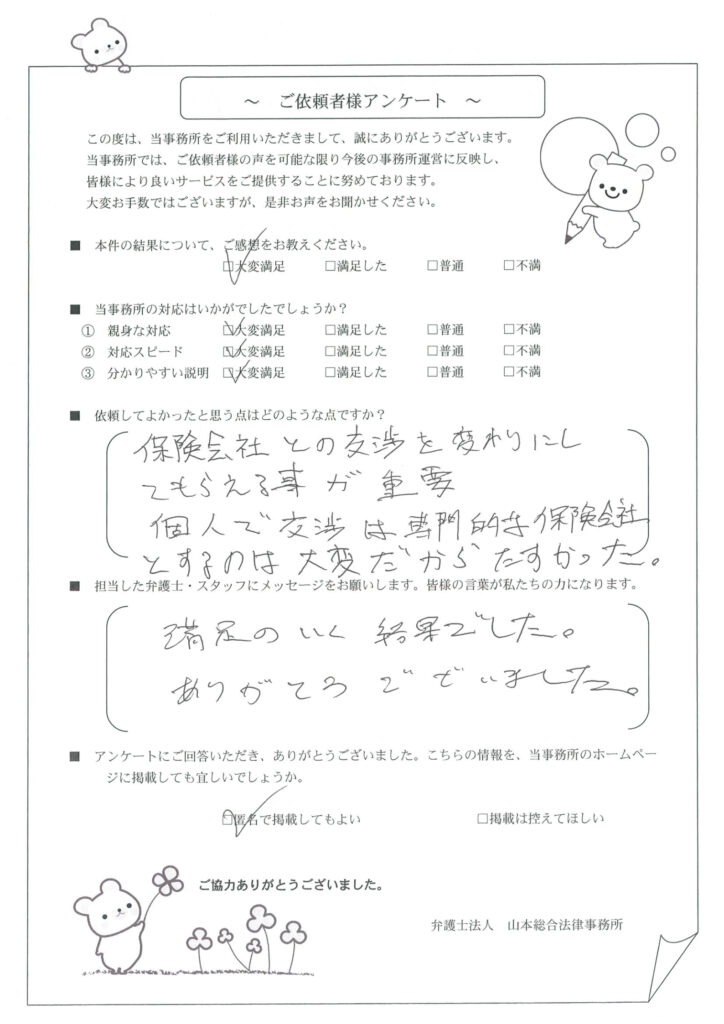 ～　ご依頼者様アンケート　～
この度は、当事務所をご利用いただきまして、誠にありがとうございます。
当事務所では、ご依頼者様の声を可能な限り今後の事務所運営に反映し、
皆様により良いサービスをご提供することに努めております。
大変お手数ではございますが、是非お声をお聞かせください。
■　本件の結果について、ご感想をお教えください。
☑大変満足　□満足した　□普通　□不満
■　当事務所の対応はいかがでしたでしょうか？
①　親身な対応　☑大変満足　□満足した　□普通　□不満
②　対応スピード　☑大変満足　□満足した　□普通　□不満
③　分かりやすい説明　☑大変満足　□満足した　□普通　□不満
■　依頼してよかったと思う点はどのような点ですか？
保険会社との交渉を変わりにし
てもらえる事が重要
個人で交渉は専門的な保険会社
とするのは大変だからたすかった。
■　担当した弁護士・スタッフにメッセージをお願いします。皆様の言葉が私たちの力になります。
満足のいく結果でした。
ありがとうございました。
■　アンケートにご回答いただき、ありがとうございました。こちらの情報を、当事務所のホームペー
ジに掲載しても宜しいでしょうか。
☑匿名で掲載してもよい　□掲載は控えてほしい
ご協力ありがとうございました。
弁護士法人　山本総合法律事務所